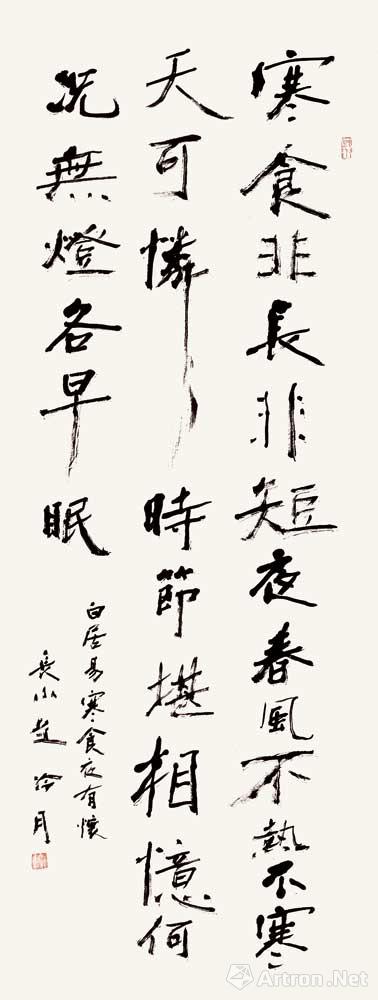 寒食非長非短夜春風不熱不寒
天可憐時節堪相憶何
况無燈各早眠
白居易寒食夜有懷
Artron.Net